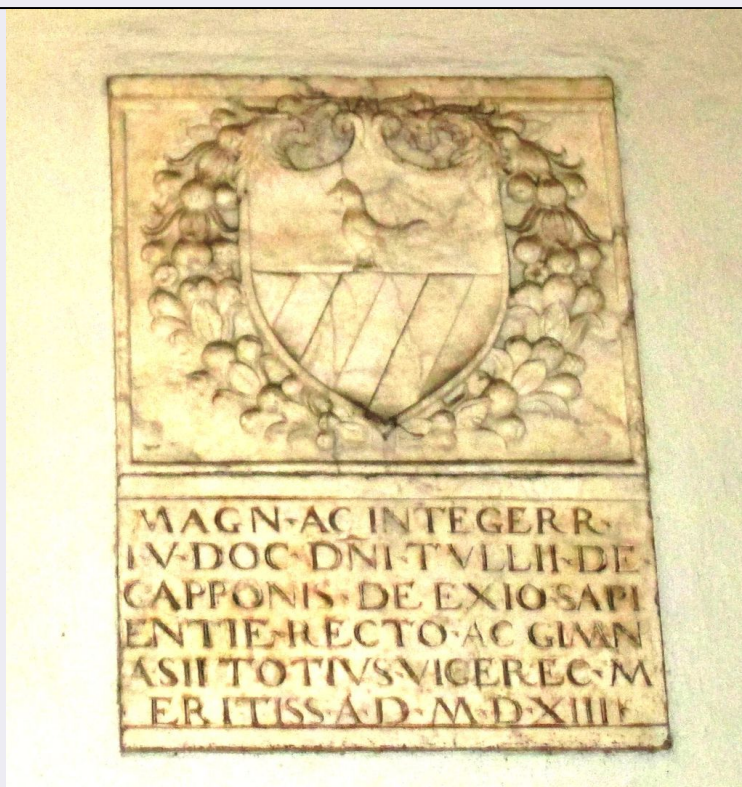 MAGN·AC INTEGERR·
IV·DOC·DÑI·TVLLII·DE·
CAPPONIS·DE EXIO·SAPI
ENTIE·RECTO·AC GIMN
ASII TOTIVS·VICEREC·M
ERITISS·A·D·M·D·XIIII